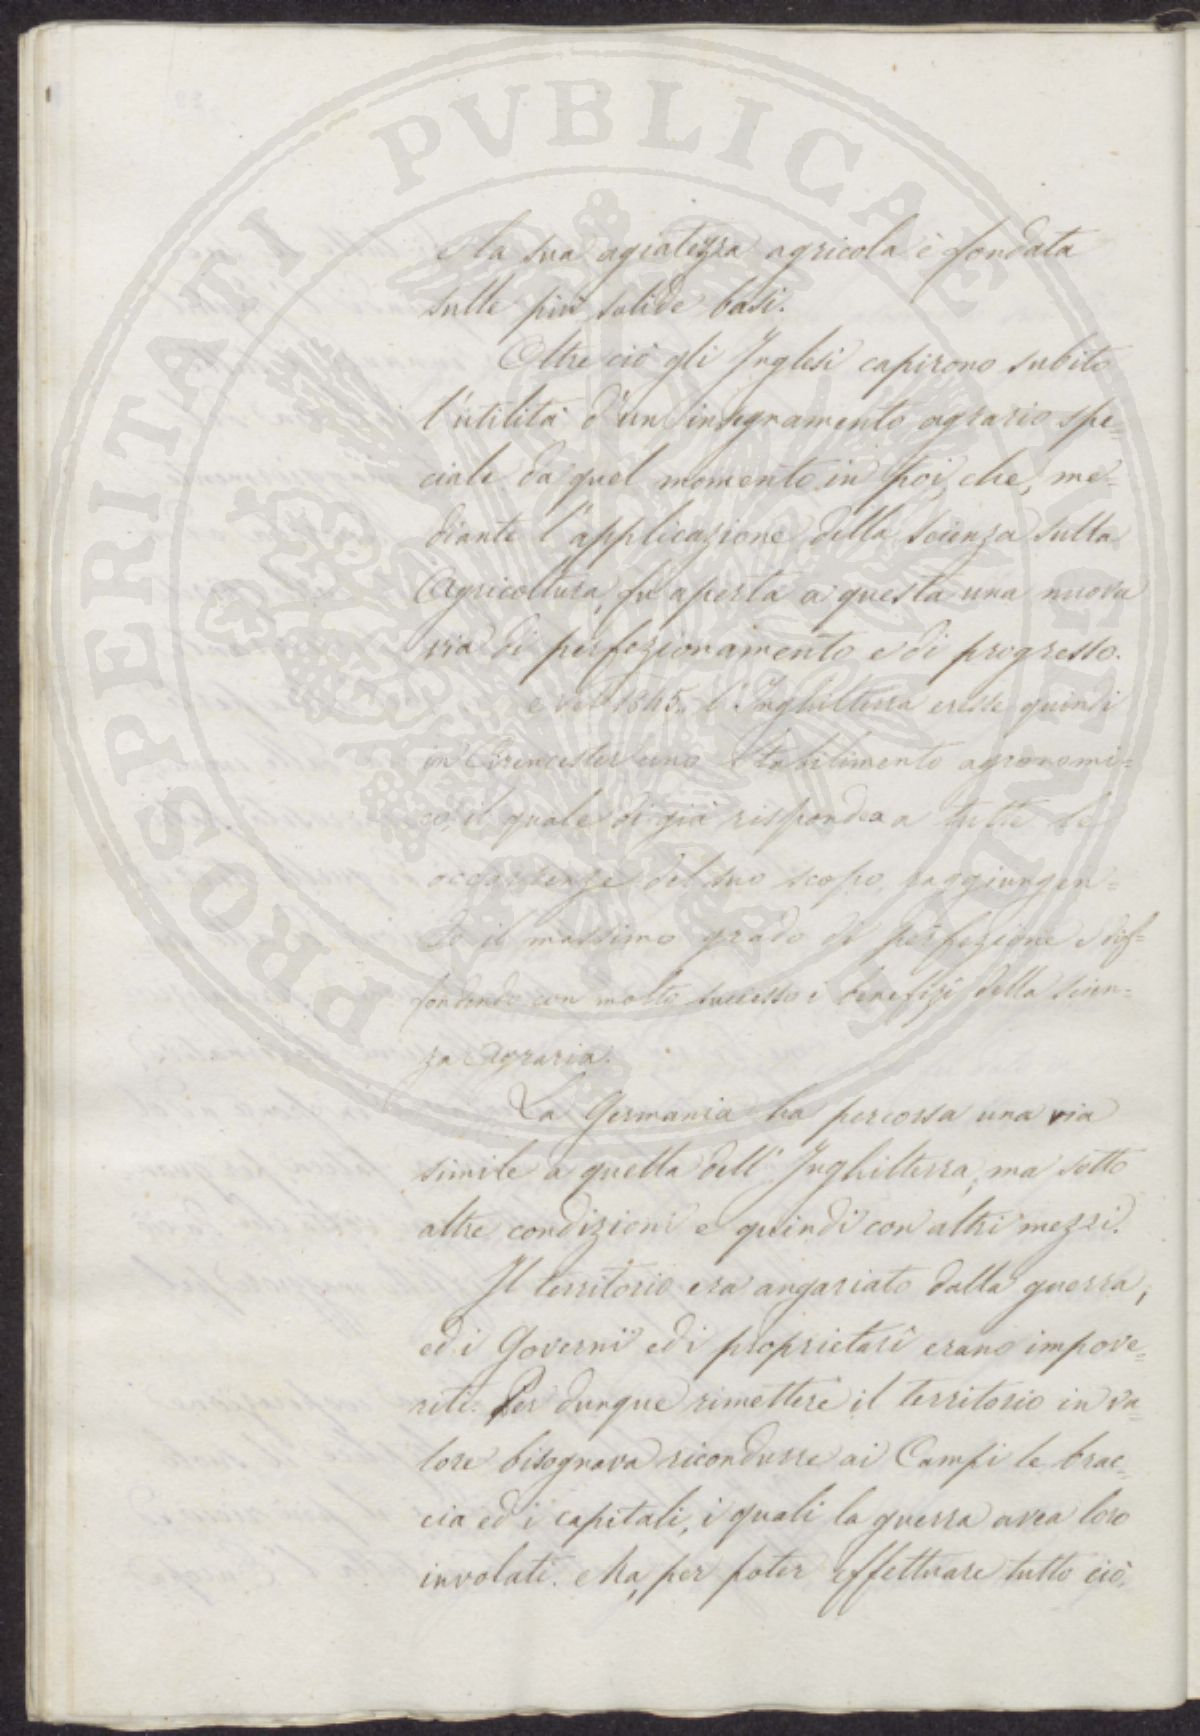 PROSPERITATI PVBLICAE AVGENDAE
la sua agiatezza agricola è fondata
sulle più solide basi.
Oltre ciò gli Inglesi capirono subito
l'utilità d'un insegnamento agrario spe=
ciale da quel momento in poi, che, me=
diante l'applicazione della scienza sulla
Agricoltura, fu aperta a questa una nuova
via di perfezionamento e di progresso.
Nel 1845. l'Inghilterra eresse quindi
in Cirencester uno Stabilimento agronomi=
co, il quale di già rispondea a tutte le
occorrenze del suo scopo, raggiungen=
do il massimo grado di perfezione e dif=
fondendo con molto successo i benefizi della scien=
za Agraria.
La Germania ha percorsa una via
simile a quella dell'Inghilterra, ma sotto
altre condizioni e quindi con altri mezzi.
Il territorio era angariato dalla guerra,
ed i Governi ed i proprietari erano impove=
riti. Per dunque rimettere il territorio in va=
lore bisognava ricondurre ai Campi le brac=
cia ed i capitali, i quali la guerra avea loro
involati. Ma, per poter effettuare tutto ciò,